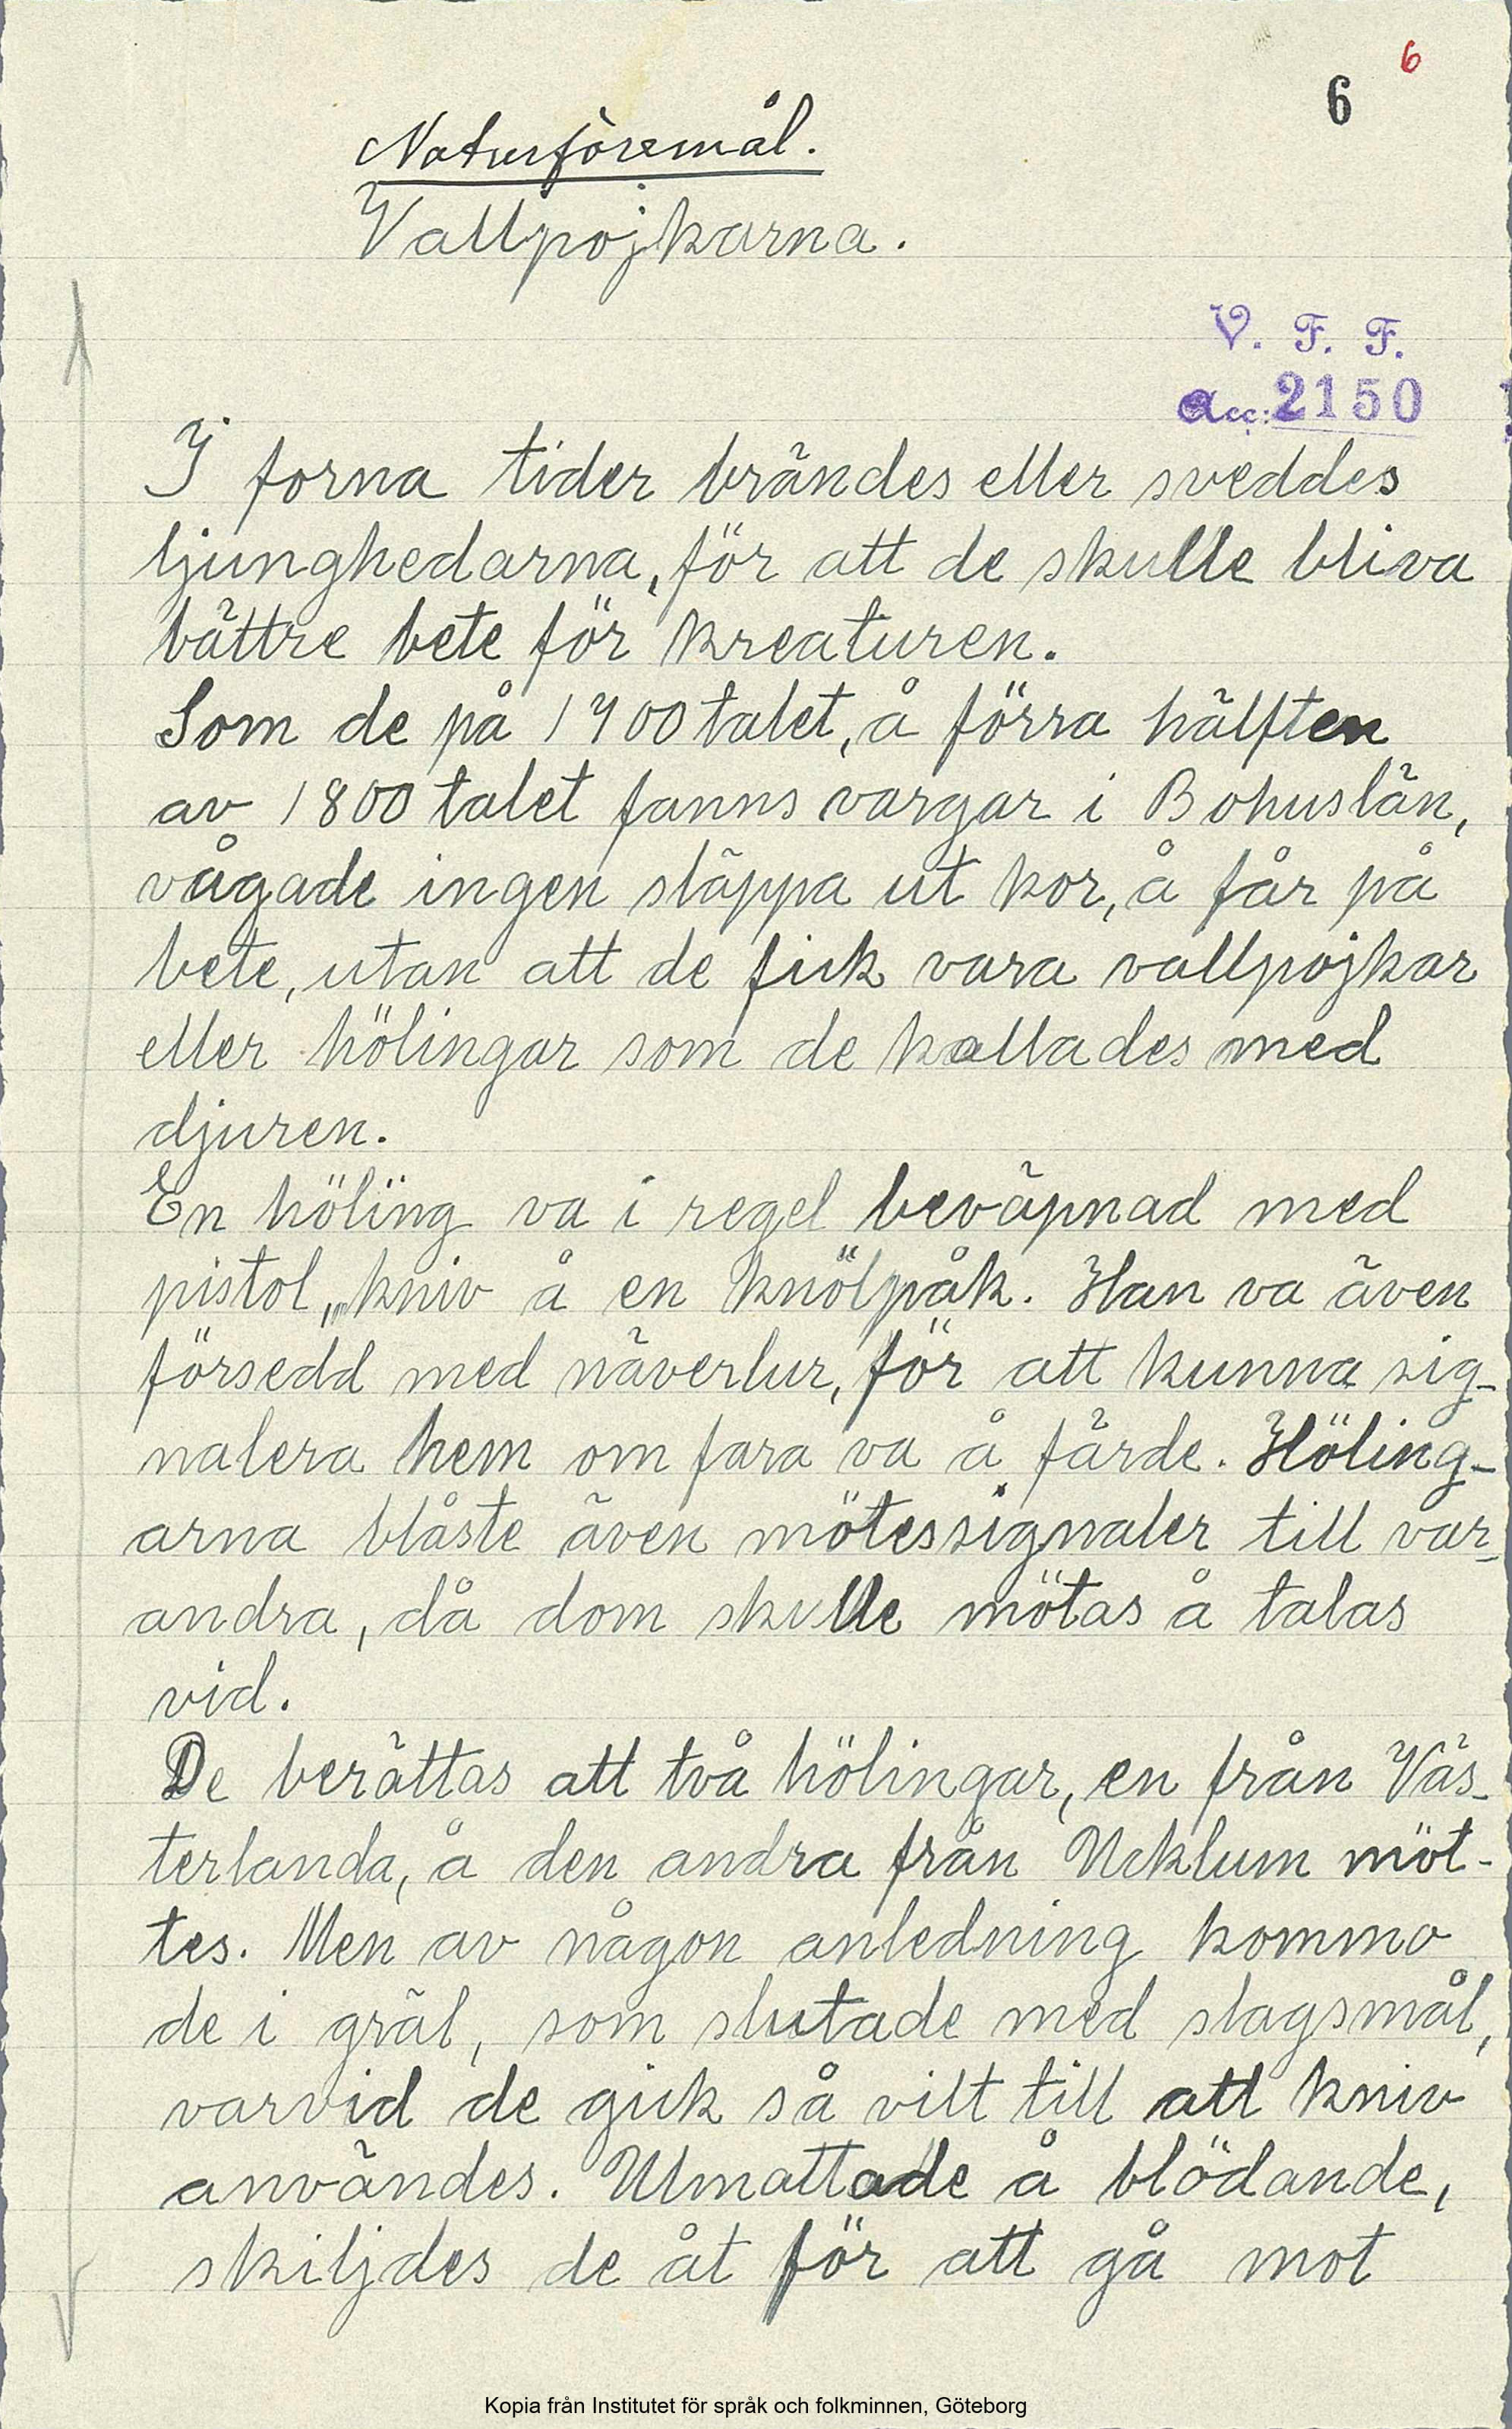 6
6
Naturföremål.
Vallpojkarna.
V. F. F.
Acc: 2150
I forna tider brändes eller sveddes
ljunghedarna, för att de skulle bliva
bättre bete för kreaturen.
Som de på 1700 talet, å förra hälften
av 1800 talet fanns vargar i Bohuslän,
vågade ingen släppa ut kor, å får på
bete, utan att de fick vara vallpojkar
eller hölingar som de kallades med
djuren.
En höling va i regel beväpnad med
pistol, kniv å en knölpåk. Han va även
försedd med näverlur, för att kunna sig-
nalera hem om fara va å färde. Höling-
arna blåste även mötessignaler till var-
andra, då dom skulle mötas å talas
vid.
De berättas att två hölingar, en från Väs-
terlanda, å den andra från Ucklum möt-
tes. Men av någon anledning kommo
de i gräl, som slutade med slagsmål,
varvid de gick så vilt till att kniv
användes. Utmattade å blödande,
skiljdes de åt för att gå mot
Kopia från Institutet för språk och folkminnen, Göteborg